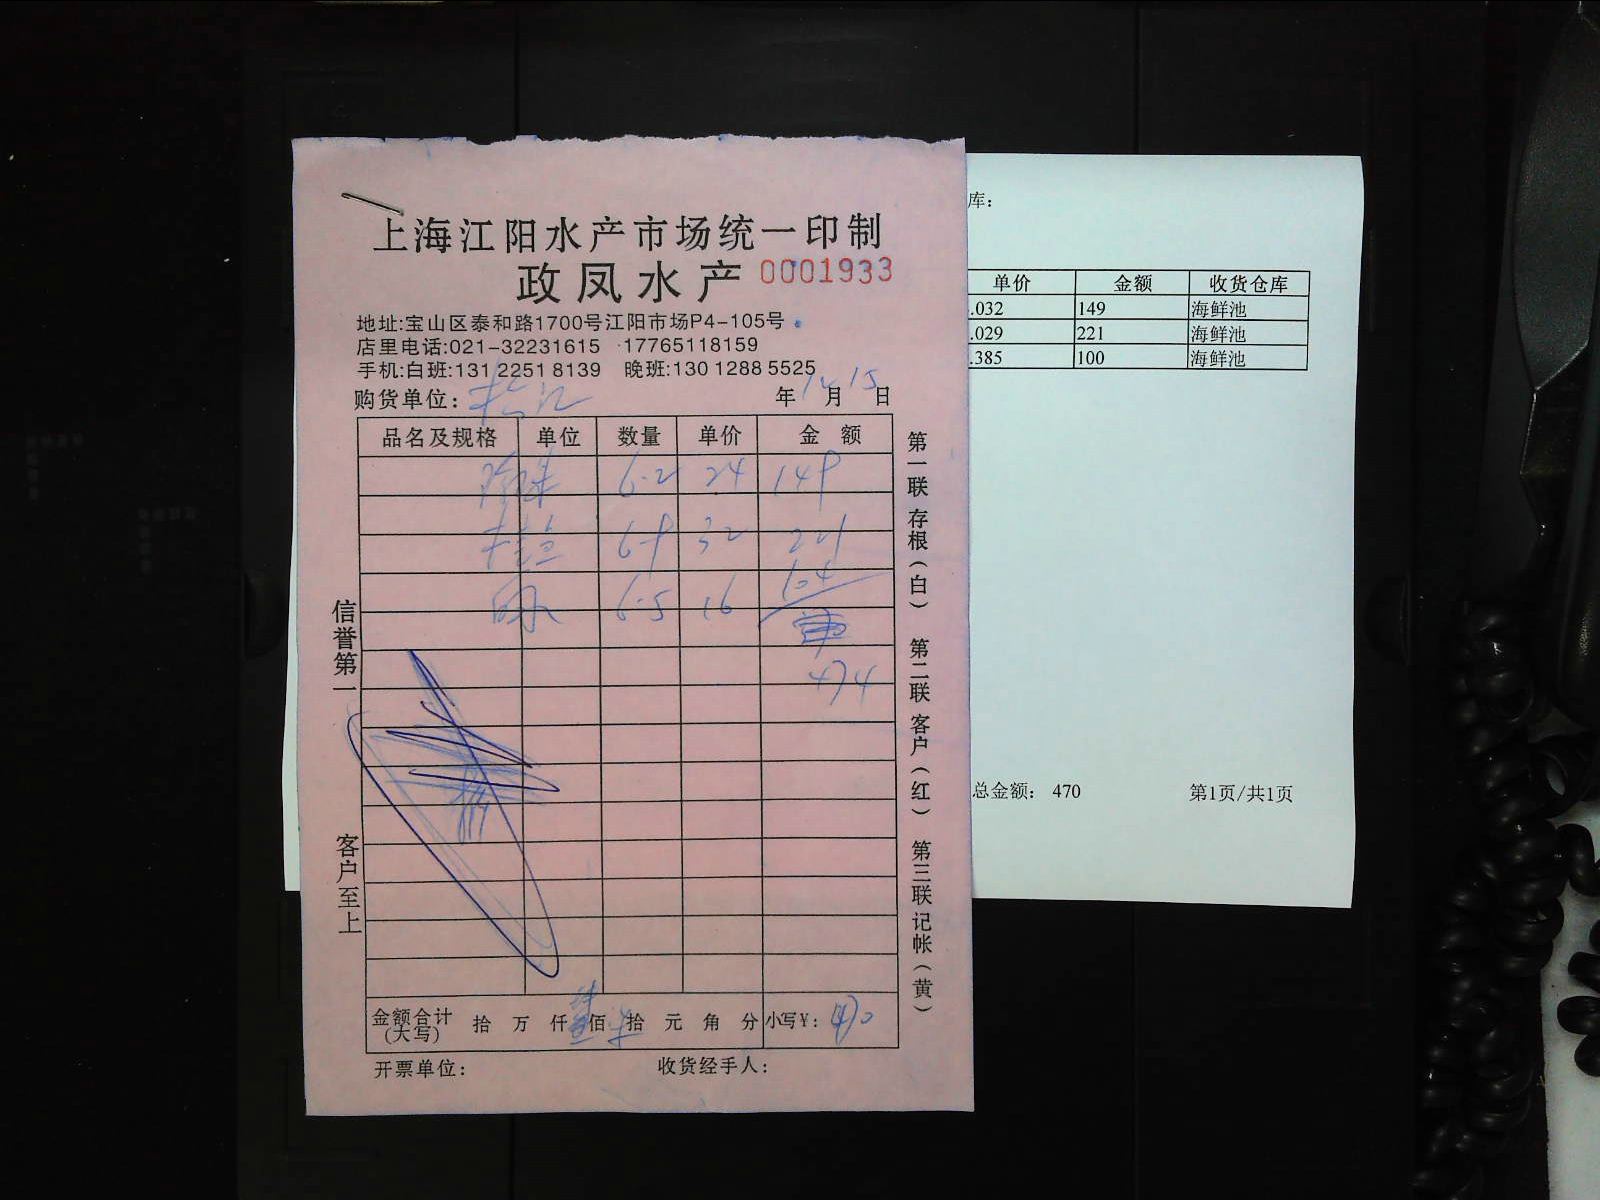 上海江阳水产市场统一印制
政凤水产 0001933
地址:宝山区泰和路1700号江阳市场P4-105号
店里电话:021-32231615 17765118159
手机:白班:131 2251 8139 晚班:130 1288 5525
购货单位: 年 月 15 日
品名及规格 单位 数量 单价 金 额
6.2 24 149
桂鱼 6.9 32 221
6.5 16 104
474
金额合计(大写) 拾 万 仟 佰 拾 元 角 分 小写¥: 470
开票单位: 收货经手人:
信誉第一 客户至上
第一联 存根(白) 第二联 客户(红) 第三联 记帐(黄)
库:
单价 金额 收货仓库
.032 149 海鲜池
.029 221 海鲜池
.385 100 海鲜池
总金额: 470 第1页/共1页